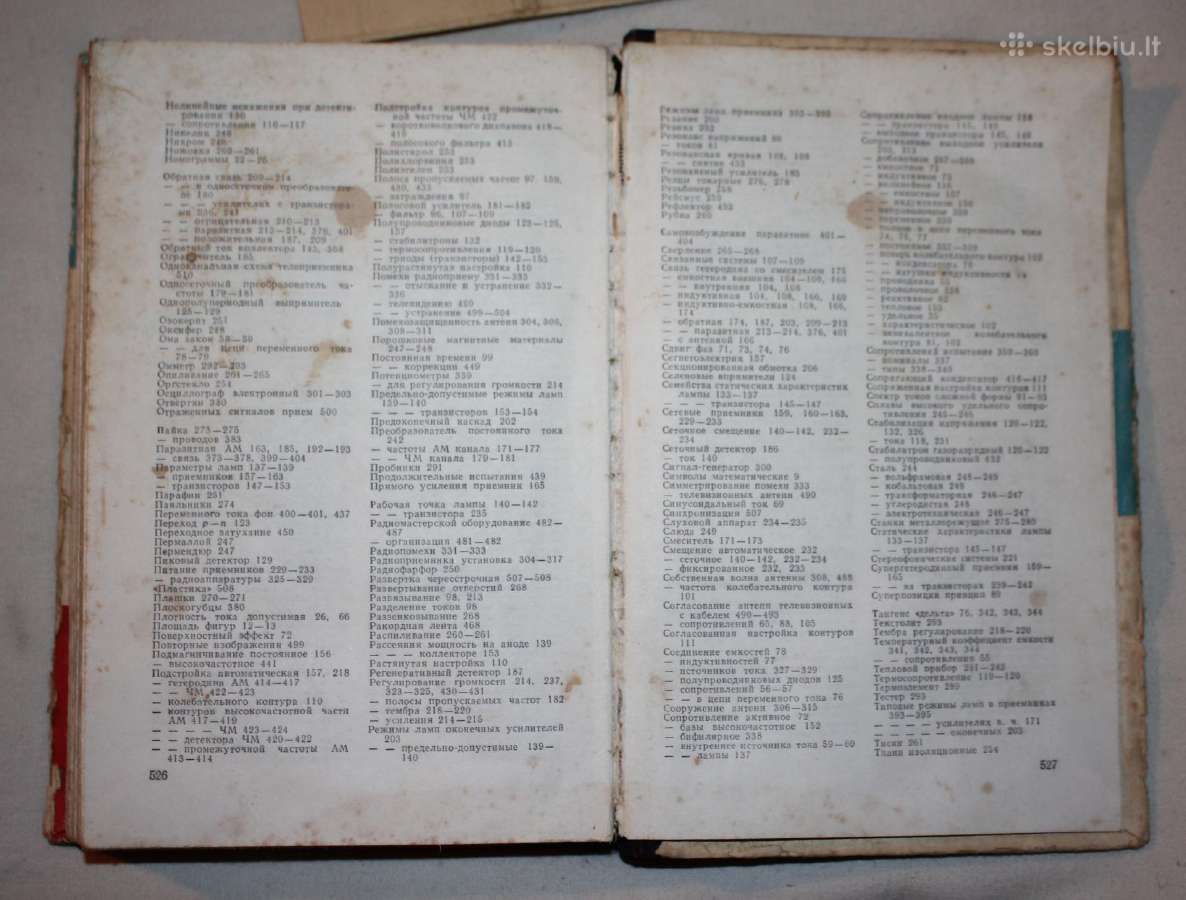 skelbiu.lt
Нелинейные искажения при детекти-
ровании 130
— сопротивления 116—117
Никелин 248
Нихром 248
Ножовка 260—261
Номограммы 22—26
Обратная связь 209—214
— — в односеточном преобразовате-
ле 180
— — усилителях с транзистора-
ми 236, 241
— — отрицательная 210—213
— — паразитная 213—214, 376, 401
— — положительная 187, 209
Обратный ток коллектора 145, 368
Ограничитель 165
Одноканальная схема телеприемника
510
Односеточный преобразователь ча-
стоты 179—181
Однополупериодный выпрямитель
125—129
Озокерит 251
Оксифер 248
Ома закон 58—59
— — для цепи переменного тока
78—79
Омметр 292—293
Опиливание 261—265
Оргстекло 254
Осциллограф электронный 301—303
Отвертки 380
Отраженных сигналов прием 500
Пайка 273—275
— проводов 383
Паразитная АМ 163, 185, 192—193
— связь 373—378, 399—404
Параметры ламп 137—139
— приемников 157—163
— транзисторов 147—153
Парафин 251
Паяльники 274
Переменного тока фон 400—401, 437
Переход p—n 123
Переходное затухание 450
Пермаллой 247
Пермендюр 247
Пиковый детектор 129
Питание приемников 229—233
— радиоаппаратуры 325—329
«Пластика» 508
Плашки 270—271
Плоскогубцы 380
Плотность тока допустимая 26, 66
Площадь фигур 12—13
Поверхностный эффект 72
Повторные изображения 499
Подмагничивание постоянное 156
— высокочастотное 441
Подстройка автоматическая 157, 218
— гетеродина АМ 414—417
— — ЧМ 422—423
— колебательного контура 110
— контуров высокочастотной части
АМ 417—419
— — — — ЧМ 423—424
— — детектора ЧМ 420—422
— — промежуточной частоты АМ
413—414
526
Подстройка контуров промежуточ-
ной частоты ЧМ 422
— коротковолнового диапазона 418—
419
— полосового фильтра 413
Полистирол 253
Полихлорвинил 253
Полиэтилен 253
Полоса пропускаемых частот 97, 159,
430, 433
— заграждения 97
Полосовой усилитель 181—182
— фильтр 96, 107—109
Полупроводниковые диоды 123—126,
137
— стабилитроны 132
— термосопротивления 119—120
— триоды (транзисторы) 142—155
Полурастянутая настройка 110
Помехи радиоприему 331—335
— — отыскание и устранение 332—
336
— телевидению 490
— — устранение 499—504
Помехозащищенность антенн 304, 306,
308—311
Порошковые магнитные материалы
247—248
Постоянная времени 99
— — коррекции 449
Потенциометры 339
— для регулирования громкости 214
Предельно-допустимые режимы ламп
139—140
— — — транзисторов 153—154
Предоконечный каскад 202
Преобразователь постоянного тока
242
— частоты АМ канала 171—177
— — ЧМ канала 179—181
Пробники 291
Продолжительные испытания 439
Прямого усиления приемник 165
Рабочая точка лампы 140—142
— — транзистора 235
Радиомастерской оборудование 482—
487
— организация 481—482
Радиопомехи 331—333
Радиоприемника установка 304—317
Радиофарфор 250
Развертка чересстрочная 507—508
Развертывание отверстий 268
Развязывание 98, 213
Разделение токов 98
Раззенковывание 268
Ракордная лента 468
Распиливание 260—261
Рассеяния мощность на аноде 139
— — — коллекторе 153
Растянутая настройка 110
Регенеративный детектор 187
Регулирование громкости 214, 237,
323—325, 430—431
— полосы пропускаемых частот 182
— тембра 218—220
— усиления 214—215
Режимы ламп оконечных усилителей
203
— — предельно-допустимые 139—
140
Режимы ламп приемника 393—395
Резание 260
Резина 252
Резонанс напряжений 80
— токов 81
Резонансная кривая 102, 103
— — снятие 433
Резонансный усилитель 185
Резцы токарные 276, 278
Резьбомер 258
Рейсмус 259
Рефлектор 492
Рубка 260
Самовозбуждение паразитное 401—
404
Сверление 265—268
Связанные системы 107—109
Связь гетеродина со смесителем 175
— емкостная внешняя 104—106, 166
— — внутренняя 104, 106
— индуктивная 104, 106, 166, 169
— индуктивно-емкостная 104, 166,
174
— обратная 174, 187, 203, 209—213
— — паразитная 213—214, 376, 401
— с антенной 166
Сдвиг фаз 71, 73, 74, 76
Сегнетоэлектрик 157
Секционированная обмотка 206
Селеновые впрямители 124
Семейства статических характеристик
лампы 135—137
— — транзистора 145—147
Сетевые приемники 159, 160—163,
229—233
Сеточное смещение 140—142, 232—
234
Сеточный детектор 186
— ток 140
Сигнал-генератор 300
Символы математические 9
Симметрирование помехи 333
— телевизионных антенн 490
Синусоидальный ток 69
Синхронизация 507
Слуховой аппарат 234—235
Слюда 249
Смеситель 171—173
Смещение автоматическое 232
— сеточное 140—142, 232—234
— фиксированное 232, 235
Собственная волна антенны 308, 488
— частота колебательного контура
101
Согласование антенн телевизионных
с кабелем 490—493
— сопротивлений 60, 83, 105
Согласованная настройка контуров
111
Соединение емкостей 78
— индуктивностей 77
— источников тока 327—329
— полупроводниковых диодов 125
— сопротивлений 56—57
— — в цепи переменного тока 76
Сооружение антенн 306—315
Сопротивление активное 72
— базы высокочастотное 152
— бифилярное 338
— внутреннее источника тока 59—60
— — лампы 137
Сопротивление входное лампы 138
— — транзистора 145, 148
— выходное транзистора 145, 148
Сопротивление выходное усилителя
— емкостное 71
— индуктивное 73
— переменное 339
— полное в цепи переменного тока
74, 76, 77
— — конденсатора 76
— реактивное 82
— тепловое 153
— удельное 55
— характеристическое 102
— эквивалентное колебательного
контура 81, 102
Сопротивлений испытание 359—360
— номиналы 337
— типы 338—340
Сопрягающий конденсатор 416—417
Сопряженная настройка контуров 111
Спектр токов сложной формы 91—93
Сплавы высокого удельного сопро-
тивления 245—246
Стабилизация напряжения 120—122,
132, 326
— тока 118, 231
Стабилитрон газоразрядный 120—122
— полупроводниковый 132
Сталь 244
— вольфрамовая 248—249
— кобальтовая 248
— трансформаторная 246—247
— углеродистая 248
— электротехническая 246—247
Станки металлорежущие 275—280
Статические характеристики лампы
135—137
— — транзистора 145—147
Стереофонические системы 221
Супергетеродинный приемник 159—
165
— — на транзисторах 239—242
Суперпозиции принцип 89
Тангенс «дельта» 76, 342, 343, 344
Текстолит 253
Тембра регулирование 218—220
Температурный коэффициент емкости
341, 342, 343, 344
— — сопротивления 55
Тепловой прибор 281—283
Термосопротивление 119—120
Термоэлемент 289
Тестер 293
Типовые режимы ламп в приемниках
393—395
— — — — усилителях в. ч. 171
— — — — — оконечных 203
Тиски 261
Ткани изоляционные 254
527